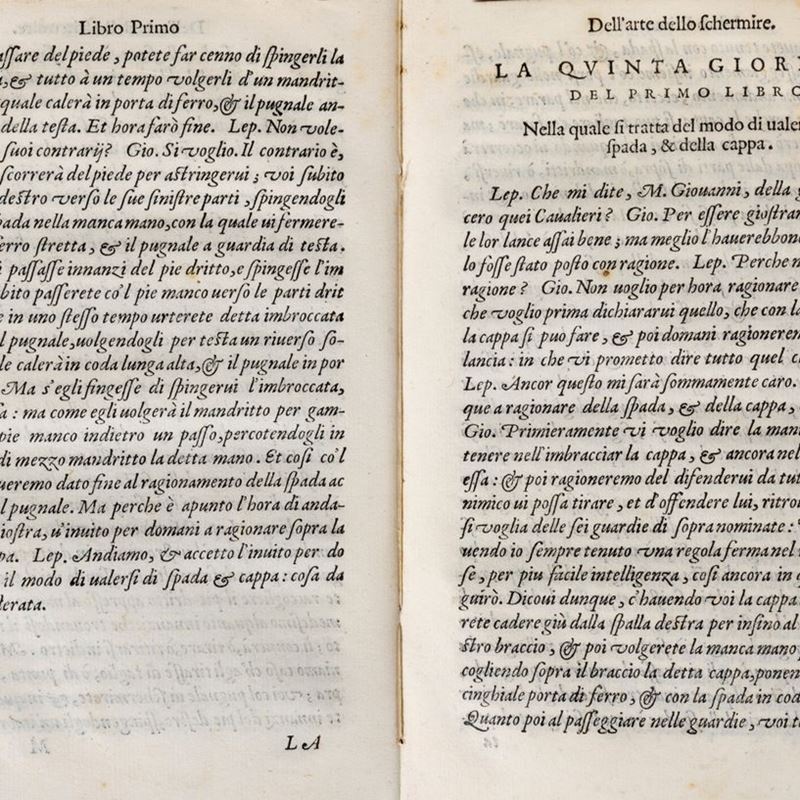 Libro Primo
aſſare del piede, potete far cenno di ſpingerli la
, & tutto à un tempo volgerli d'un mandrit-
quale calerà in porta di ferro, & il pugnale an-
della teſta. Et hora farò fine. Lep. Non vole-
ſuoi contrarij? Gio. Si voglio. Il contrario è,
ſcorrerà del piede per aſtringerui; voi ſubito
deſtro verſo le ſue ſiniſtre parti, ſpingendogli
pada nella manca mano, con la quale ui fermere-
ferro ſtretta, & il pugnale a guardia di teſta.
i paſſaſſe innanzi del pie dritto, e ſpingeſſe l'im
bito paſſerete co'l pie manco uerſo le parti drit
e in uno ſteſſo tempo urterete detta imbroccata
l pugnale, uolgendogli per teſta un riuerſo ſo-
le calerà in coda lunga alta, & il pugnale in por
Ma s'egli fingeſſe di ſpingerui l'imbroccata,
a: ma come egli uolgerà il mandritto per gam-
pie manco indietro un paſſo, percotendogli in
di mezzo mandritto la detta mano. Et coſi co'l
ueremo dato fine al ragionamento della ſpada ac
l pugnale. Ma perche è apunto l'hora di anda-
ioſtra, u'inuito per domani a ragionare ſopra la
pa. Lep. Andiamo, & accetto l'inuito per do
il modo di ualerſi di ſpada & cappa: coſa da
derata.
LA
Dell'arte dello ſchermire.
LA QVINTA GIOR
DEL PRIMO LIBRO
Nella quale ſi tratta del modo di ualer
ſpada, & della cappa.
Lep. Che mi dite, M. Giouanni, della g
cero quei Caualieri? Gio. Per eſſere gioſtran
le lor lance aſſai bene; ma meglio l'hauerebbono
lo foſſe ſtato poſto con ragione. Lep. Perche n
ragione? Gio. Non uoglio per hora ragionare
che voglio prima dichiararui quello, che con la
la cappa ſi puo fare, & poi domani ragionerem
lancia: in che vi prometto dire tutto quel c
Lep. Ancor queſto mi ſarà ſommamente caro.
que a ragionare della ſpada, & della cappa,
Gio. Primieramente vi voglio dire la mani
tenere nell'imbracciar la cappa, & ancora nel
eſſa: & poi ragioneremo del difenderui da tut
nimico ui poſſa tirare, et d'offendere lui, ritro
ſi voglia delle ſei guardie di ſopra nominate:
uendo io ſempre tenuto vna regola ferma nel
ſe, per piu facile intelligenza, coſi ancora in q
guirò. Dicoui dunque, c'hauendo voi la cappa
rete cadere giù dalla ſpalla deſtra per inſino al
ſtro braccio, & poi volgerete la manca mano
cogliendo ſopra il braccio la detta cappa, ponen
cinghiale porta di ferro, & con la ſpada in cod
Quanto poi al paſſeggiare nelle guardie, voi t